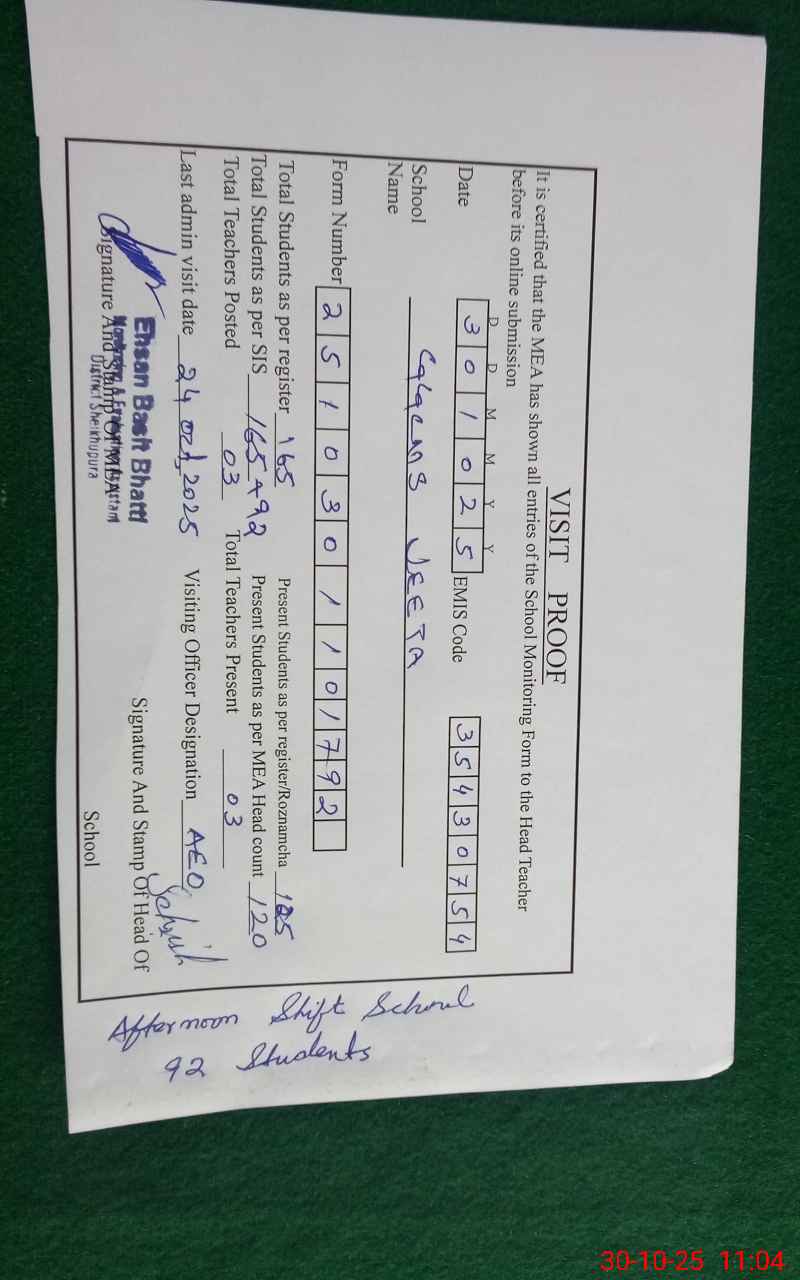 VISIT PROOF
It is certified that the MEA has shown all entries of the School Monitoring Form to the Head Teacher
before its online submission
D D M M Y Y
Date 3 0 1 0 2 5 EMIS Code 3 5 4 3 0 7 5 4
School
Name JEETA
Form Number 2 5 1 0 3 0 1 1 0 1 7 9 2
Total Students as per register 165 Present Students as per register/Roznamcha 125
Total Students as per SIS 165+92 Present Students as per MEA Head count 120
Total Teachers Posted 03 Total Teachers Present 03
Last admin visit date 24 oct, 2025 Visiting Officer Designation AEO
Ehsan Basit Bhatti
Monitoring & Evaluation Assistant
District Sheikhupura
Signature And Stamp Of MEA
Signature And Stamp Of Head Of
School
Afternoon Shift School
92 Students
30-10-25 11:04